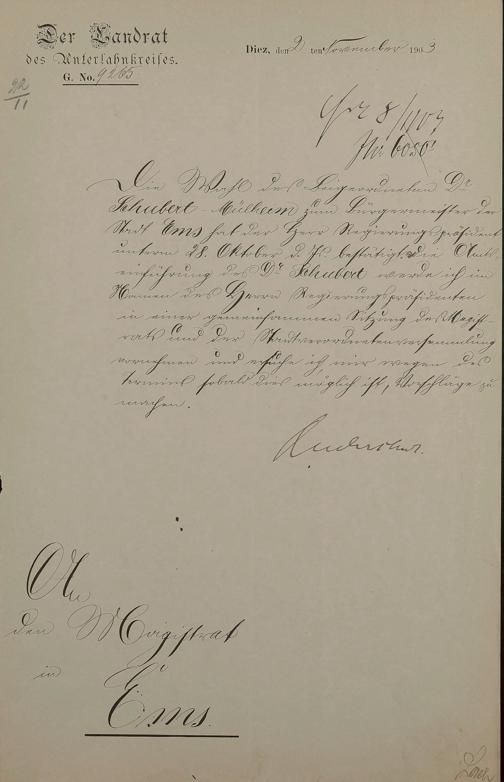 Der Landrat
des Unterlahnkreises.
G. No. 9265
Diez, den 2 ten November 1903
22/11
8/11 03
Die Wahl des Beigeordneten Dr
Schubert-Mülheim zum Bürgermeister der
Stadt Ems hat der Herr Regierungspräsident
unterm 28. Oktober d. Js. bestätigt. Die Amts-
einführung des Dr Schubert werde ich im
Namen des Herrn Regierungspräsidenten
in einer gemeinsamen Sitzung des Magist-
rats und der Stadtverordnetenversammlung
vornehmen und ersuche ich, mir wegen des
Termins sobald dies möglich ist, Vorschläge zu
machen.
An
den Magistrat
in
Ems.